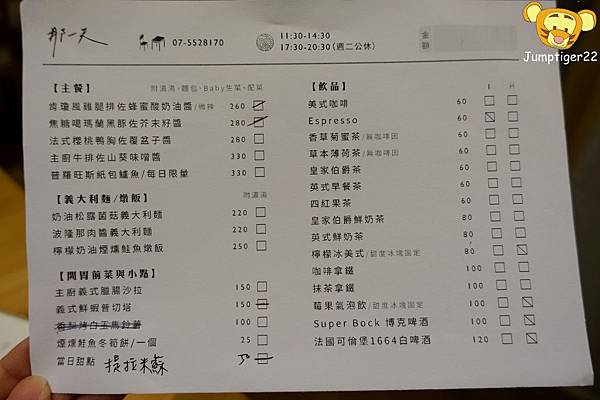 那一天
07-5528170
11:30-14:30
17:30-20:30(週二公休)
金額
Jumptiger22
【主餐】 附濃湯、麵包、Baby生菜、配菜
肯瓊風雞腿排佐蜂蜜酸奶油醬/微辣 260
焦糖噶瑪蘭黑豚佐芥末籽醬 280
法式櫻桃鴨胸佐覆盆子醬 280
主廚牛排佐山葵味噌醬 330
普羅旺斯紙包鱸魚/每日限量 330
【義大利麵/燉飯】 附濃湯
奶油松露菌菇義大利麵 220
波隆那肉醬義大利麵 220
檸檬奶油煙燻鮭魚燉飯 250
【開胃前菜與小點】
主廚義式臘腸沙拉 150
義式鮮蝦普切塔 150
香酥烤白玉馬鈴薯 100
煙燻鮭魚冬筍餅/一個 25
當日甜點 提拉米蘇 50
【飲品】 I H
美式咖啡 60
Espresso 60
香草菊蜜茶/無咖啡因 60
草本薄荷茶/無咖啡因 60
皇家伯爵茶 60
英式早餐茶 60
四紅果茶 60
皇家伯爵鮮奶茶 80
英式鮮奶茶 80
檸檬冰美式/甜度冰塊固定 80
咖啡拿鐵 100
抹茶拿鐵 100
莓果氣泡飲/甜度冰塊固定 100
Super Bock 博克啤酒 100
法國可倫堡1664白啤酒 120